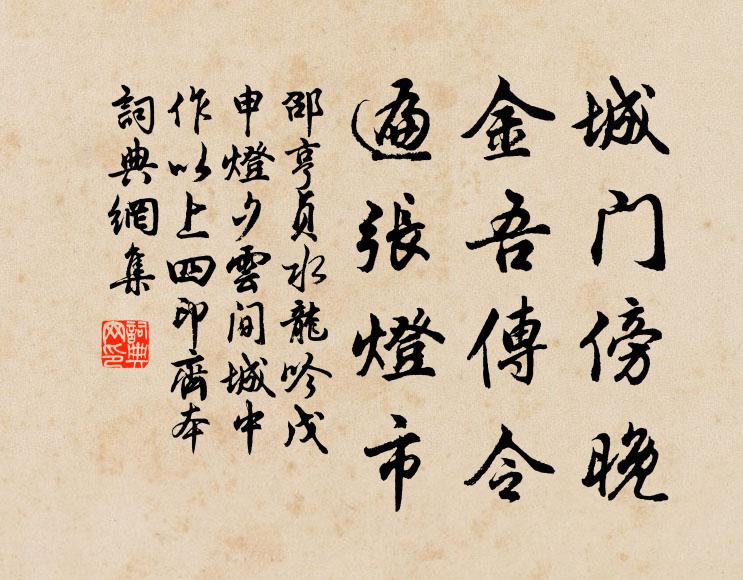 城门傍晚
金吾傳令
遍張燈市
邵亨貞水龍吟戊
申燈夕雲間城中
作以上四印齋本
詞典網集
詞典
网印